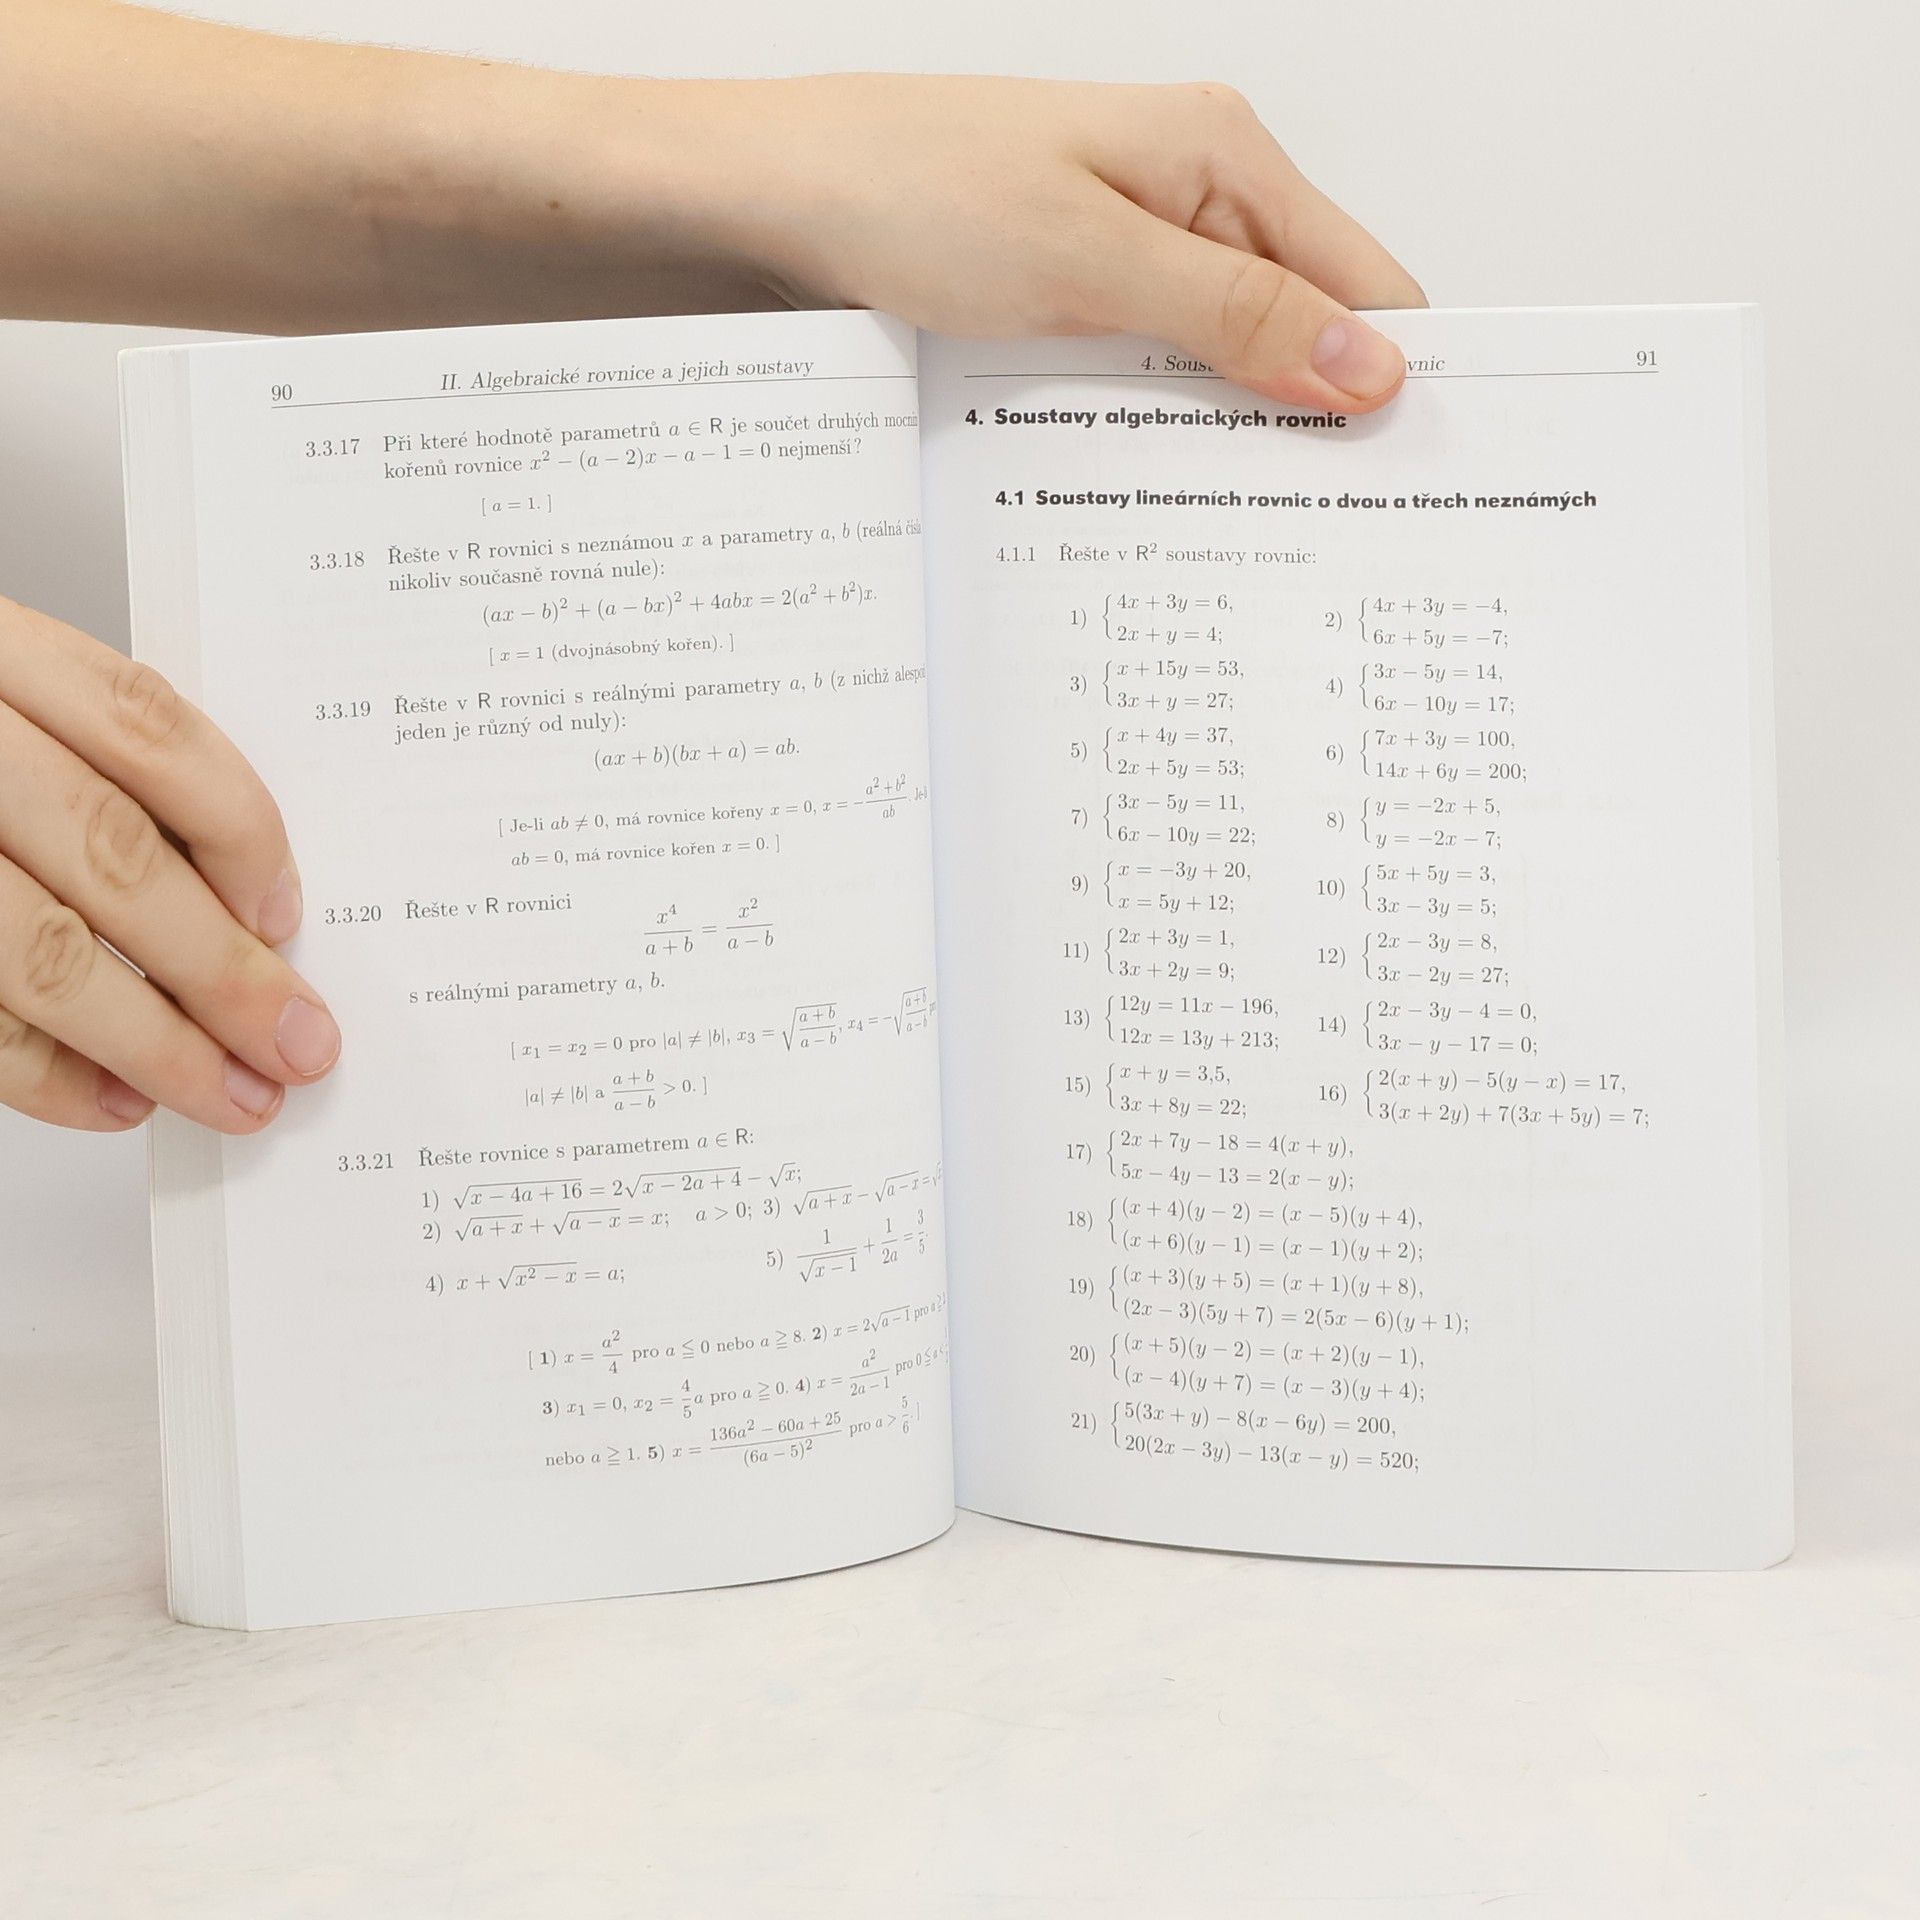 90 II. Algebraické rovnice a jejich soustavy
3.3.17 Při které hodnotě parametrů a ∈ R je součet druhých
kořenů rovnice x² − (a − 2)x − a − 1 = 0 nejmenší?
[ a = 1. ]
3.3.18 Řešte v R rovnici s neznámou x a parametry a, b (reálná
nikoliv současně rovná nule):
(ax − b)² + (a − bx)² + 4abx = 2(a² + b²)x.
[ x = 1 (dvojnásobný kořen). ]
3.3.19 Řešte v R rovnici s reálnými parametry a, b (z nichž
jeden je různý od nuly):
(ax + b)(bx + a) = ab.
[ Je-li ab ≠ 0, má rovnice kořeny x = 0, x = −(a² + b²)/(ab). Je-li
ab = 0, má rovnice kořen x = 0. ]
3.3.20 Řešte v R rovnici
x⁴/(a + b) = x²/(a − b)
s reálnými parametry a, b.
[ x₁ = x₂ = 0 pro |a| ≠ |b|, x₃ = √((a + b)/(a − b)), x₄ = −√((a + b)/(a − b))
|a| ≠ |b| a (a + b)/(a − b) > 0. ]
3.3.21 Řešte rovnice s parametrem a ∈ R:
1) √(x − 4a + 16) = 2√(x − 2a + 4) − √x;
2) √(a + x) + √(a − x) = x; a > 0; 3) √(a + x) − √(a − x) =
4) x + √(x² − x) = a; 5) 1/√(x − 1) + 1/(2a) = 3/5.
[ 1) x = a²/4 pro a ≦ 0 nebo a ≧ 8. 2) x = 2√(a − 1) pro a ≧
3) x₁ = 0, x₂ = 4/5 a pro a ≧ 0. 4) x = a²/(2a − 1) pro 0 ≦ a
nebo a ≧ 1. 5) x = (136a² − 60a + 25)/(6a − 5)² pro a > 5/6. ]
4. vnic 91
4. Soustavy algebraických rovnic
4.1 Soustavy lineárních rovnic o dvou a třech neznámých
4.1.1 Řešte v R² soustavy rovnic:
1) {4x + 3y = 6,
2x + y = 4;
2) {4x + 3y = −4,
6x + 5y = −7;
3) {x + 15y = 53,
3x + y = 27;
4) {3x − 5y = 14,
6x − 10y = 17;
5) {x + 4y = 37,
2x + 5y = 53;
6) {7x + 3y = 100,
14x + 6y = 200;
7) {3x − 5y = 11,
6x − 10y = 22;
8) {y = −2x + 5,
y = −2x − 7;
9) {x = −3y + 20,
x = 5y + 12;
10) {5x + 5y = 3,
3x − 3y = 5;
11) {2x + 3y = 1,
3x + 2y = 9;
12) {2x − 3y = 8,
3x − 2y = 27;
13) {12y = 11x − 196,
12x = 13y + 213;
14) {2x − 3y − 4 = 0,
3x − y − 17 = 0;
15) {x + y = 3,5,
3x + 8y = 22;
16) {2(x + y) − 5(y − x) = 17,
3(x + 2y) + 7(3x + 5y) = 7;
17) {2x + 7y − 18 = 4(x + y),
5x − 4y − 13 = 2(x − y);
18) {(x + 4)(y − 2) = (x − 5)(y + 4),
(x + 6)(y − 1) = (x − 1)(y + 2);
19) {(x + 3)(y + 5) = (x + 1)(y + 8),
(2x − 3)(5y + 7) = 2(5x − 6)(y + 1);
20) {(x + 5)(y − 2) = (x + 2)(y − 1),
(x − 4)(y + 7) = (x − 3)(y + 4);
21) {5(3x + y) − 8(x − 6y) = 200,
20(2x − 3y) − 13(x − y) = 520;